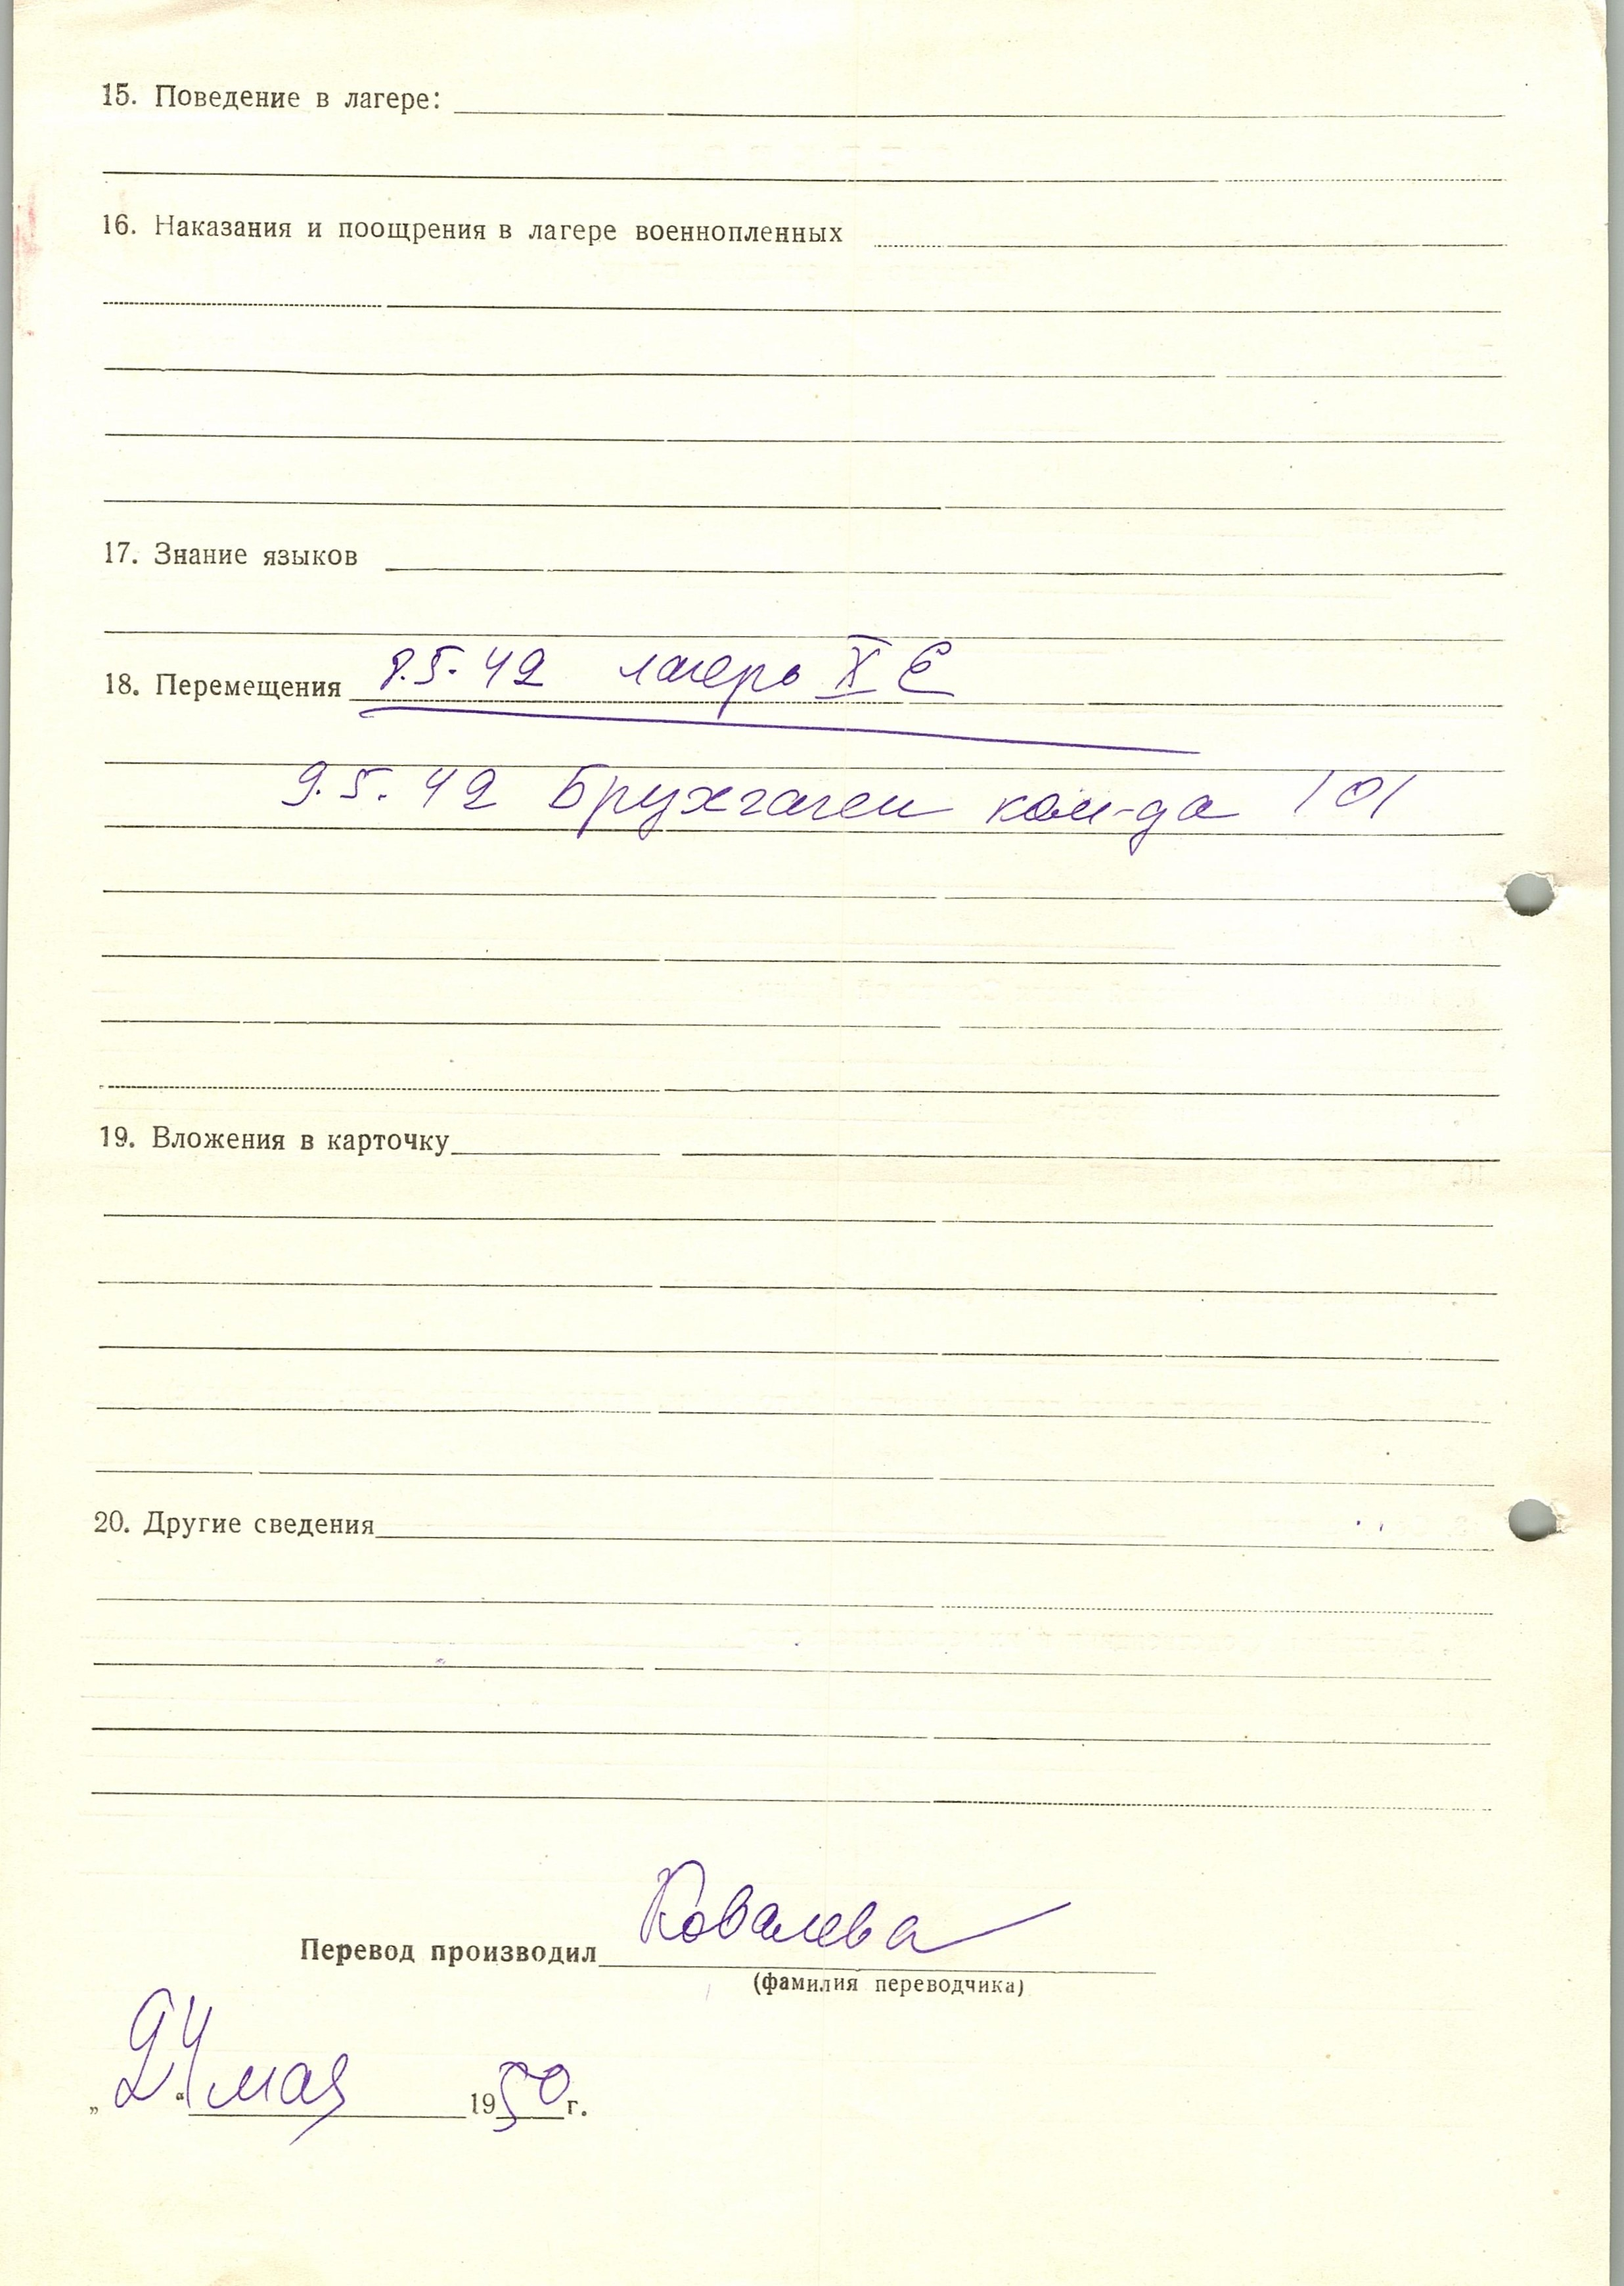 15. Поведение в лагере:
16. Наказания и поощрения в лагере военнопленных
17. Знание языков
18. Перемещения 8.5.42 лагерь X C
9.5.42 Брухгаген ком-да 101
19. Вложения в карточку
20. Другие сведения
Перевод производил Ковалева
(фамилия переводчика)
„24“ мая 1950 г.